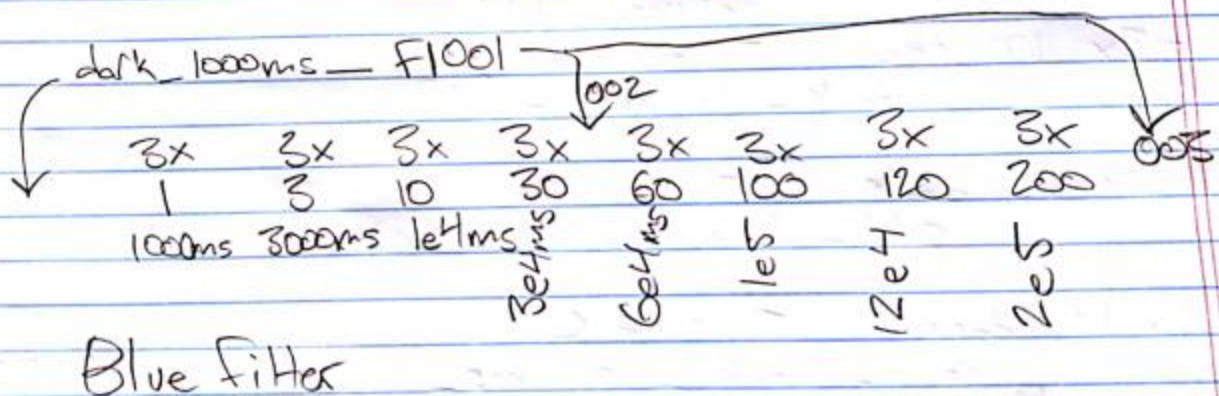 dark_1000ms_ F1001
002
3x 3x 3x 3x 3x 3x 3x 3x 003
1 3 10 30 60 100 120 200
1000ms 3000ms 1e4ms 3e4ms 6e4ms 1e5 12e4 2e5
Blue Filter